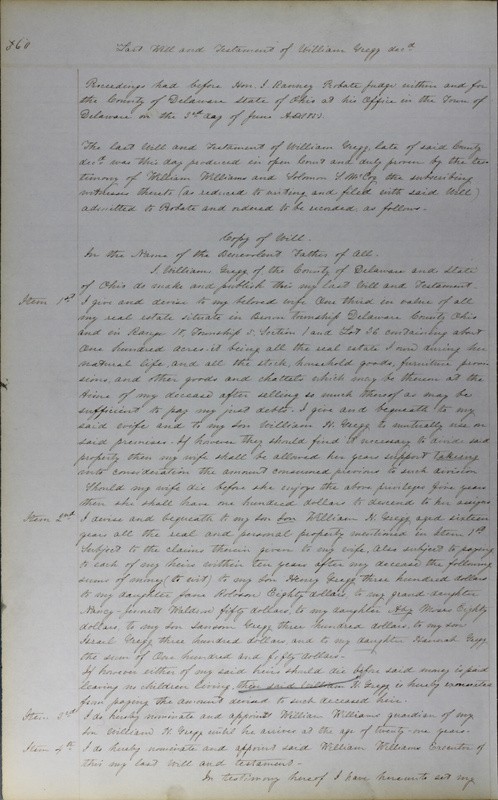 360
Last Will and Testament of William Gregg decd.
Proceedings had before Hon. J. Ranney Probate judge within and for
the County of Delaware state of Ohio at his Office in the Town of
Delaware on the 3rd day of June A.D. 1853.
The last Will and Testament of William Gregg, late of said County
decd. was this day produced in open Court and duly proven by the tes
timony of William Williams and Solomon S McCoy the subscribing
witnesses thereto (as reduced to writing and filed with said Will)
admitted to Probate and ordered to be recorded, as follows.
Copy of Will.
In the Name of the Benevolent Father of All.
I, William Gregg of the County of Delaware and state
of Ohio do make and publish this my last Will and Testament.
Item 1st I give and devise to my beloved wife One third in value of all
my real estate situate in Township Delaware County Ohio
and in Range 18, Township 5, Section 1 and Lot 36 containing about
One hundred acres. it being all the real estate I own during her
natural life, and all the stock, household goods, furniture provis
sions, and other goods and chattels which may be thereon at the
time of my decease after selling so much thereof as may be
sufficient to pay my just debts. I give and bequeath to my
said wife and to my son William H. Gregg to mutually use on
said premises. If however they should find it necessary to divide said
property then my wife shall be allowed her years support takeing
into consideration the amount consumed previous to such division
Should my wife die before she enjoys the above privileges five years
then she shall have one hundred dollars to descend to her assigns
Item 2nd I devise and bequeath to my son William H. Gregg aged sixteen
years all the real and personal property mentioned in Item 1st
Subject to the claims therein given to my wife, Also subject to paying
to each of my heirs within ten years after my decease the following
sums of money (to wit) to my son Henry Gregg three hundred dollars
to my daughter Jane Robison Eighty dollars, to my grand daughter
Nancy Jennett Waldron fifty dollars, to my daughter Moses Eighty
dollars, to my son Sanson Gregg three hundred dollars, to my son
Israel Gregg three hundred dollars, and to my daughter Hannah Gregg
the sum of One hundred and fifty dollars.
If however either of my said heirs should die before said money is paid
leaving no children living, then said William H. Gregg is hereby exonerated
from paying the amount devised to such deceased heir.
Item 3rd I do hereby nominate and appoint William Williams guardian of my
son William H Gregg until he arrives at the age of twenty-one years.
Item 4th I do hereby nominate and appoint said William Williams Executor of
this my last will and testament.
In testimony hereof I have hereunto set my